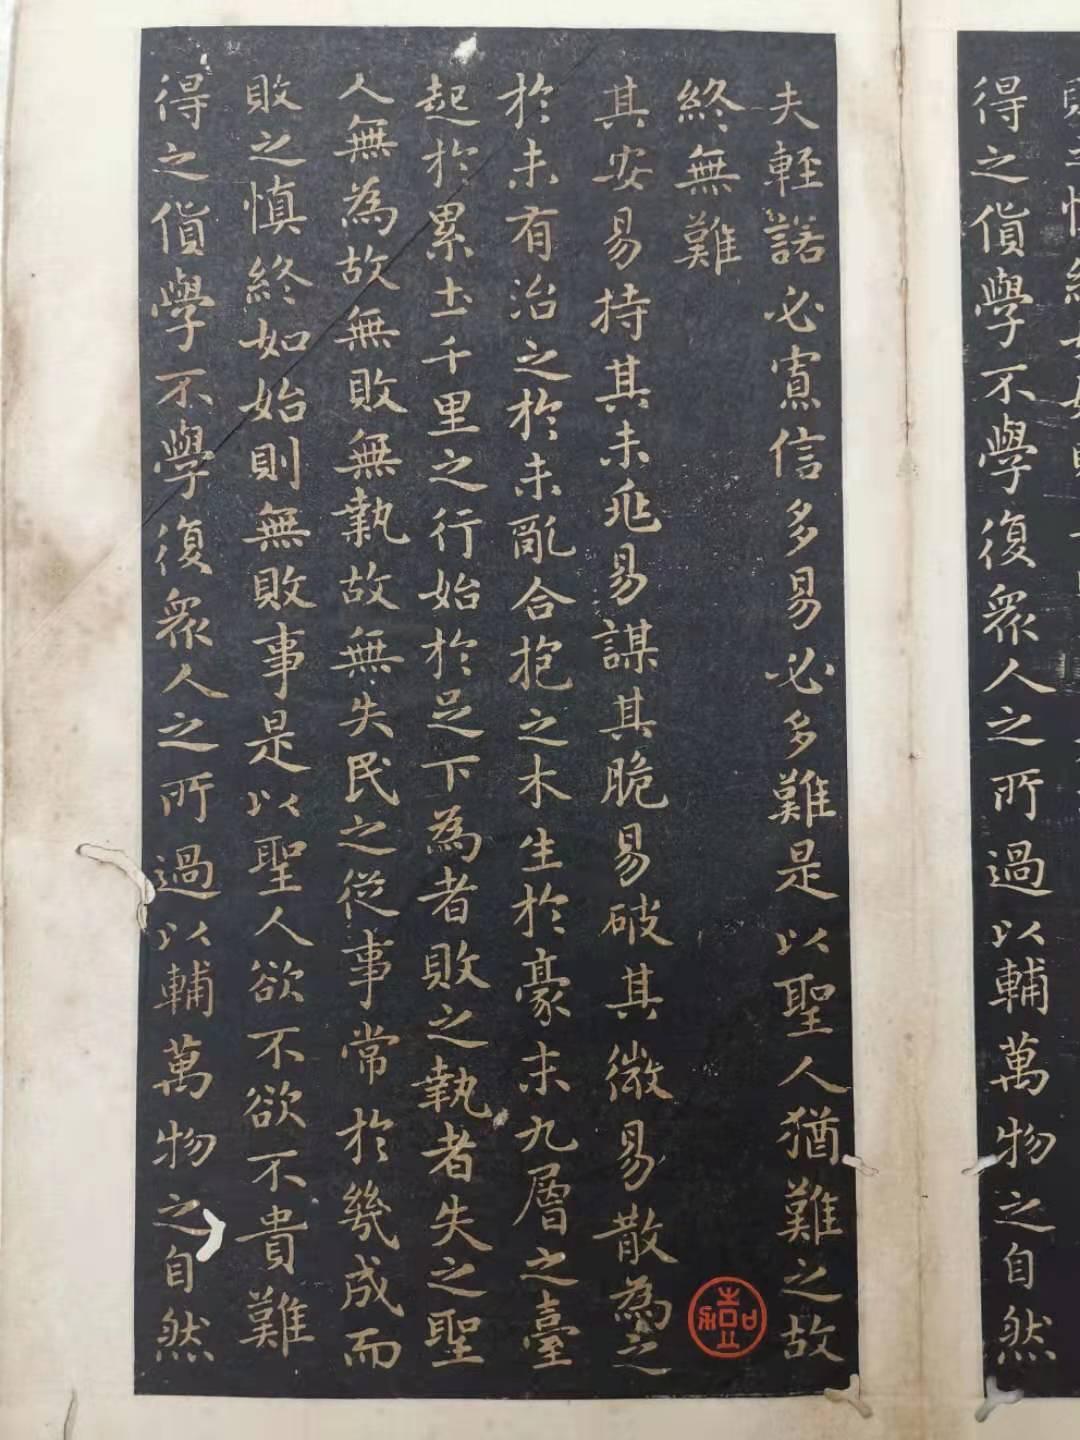 得之貨學不學復衆人之所過以輔萬物之自然
夫輕諾必寡信多易必多難是以聖人猶難之故
終無難
其安易持其未兆易謀其脆易破其微易散為之
於未有治之於未亂合抱之木生於豪末九層之臺
起於累土千里之行始於足下為者敗之執者失之聖
人無為故無敗無執故無失民之從事常於幾成而
敗之慎終如始則無敗事是以聖人欲不欲不貴難
得之貨學不學復衆人之所過以輔萬物之自然